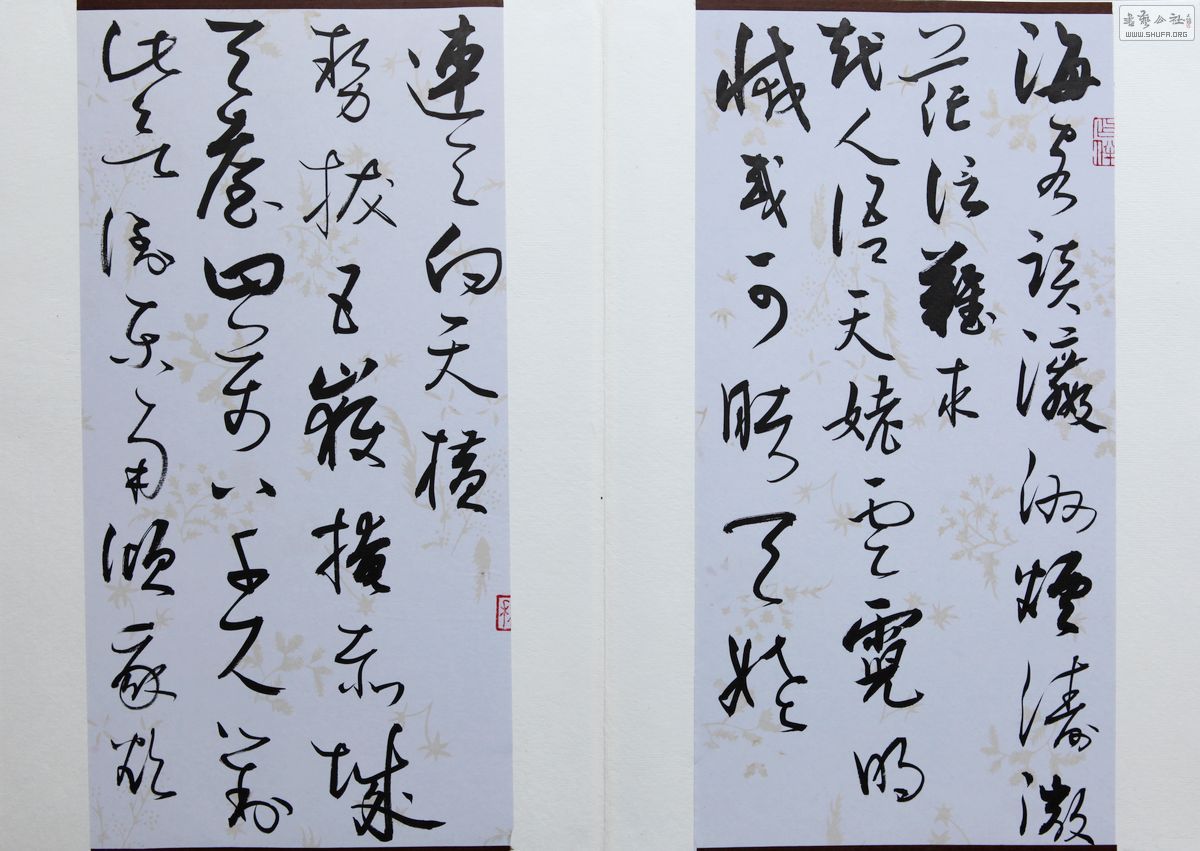 海客談瀛洲煙濤微
茫信難求
越人語天姥雲霓明
滅或可睹天姥
連天向天橫
勢拔五嶽掩赤城
天臺四萬八千丈對
此欲倒東南傾我欲
書藝公社
WWW.SHUFA.ORG